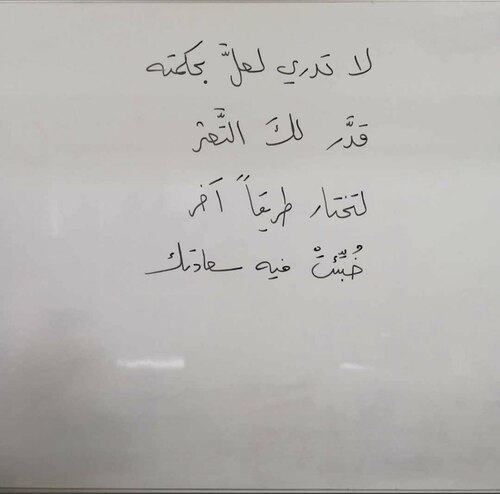 لا تدري لعلَّ بحكمته
قدَّر لكَ التَّعثر
لتختار طريقاً آخر
خُبِّئتْ فيه سعادتك